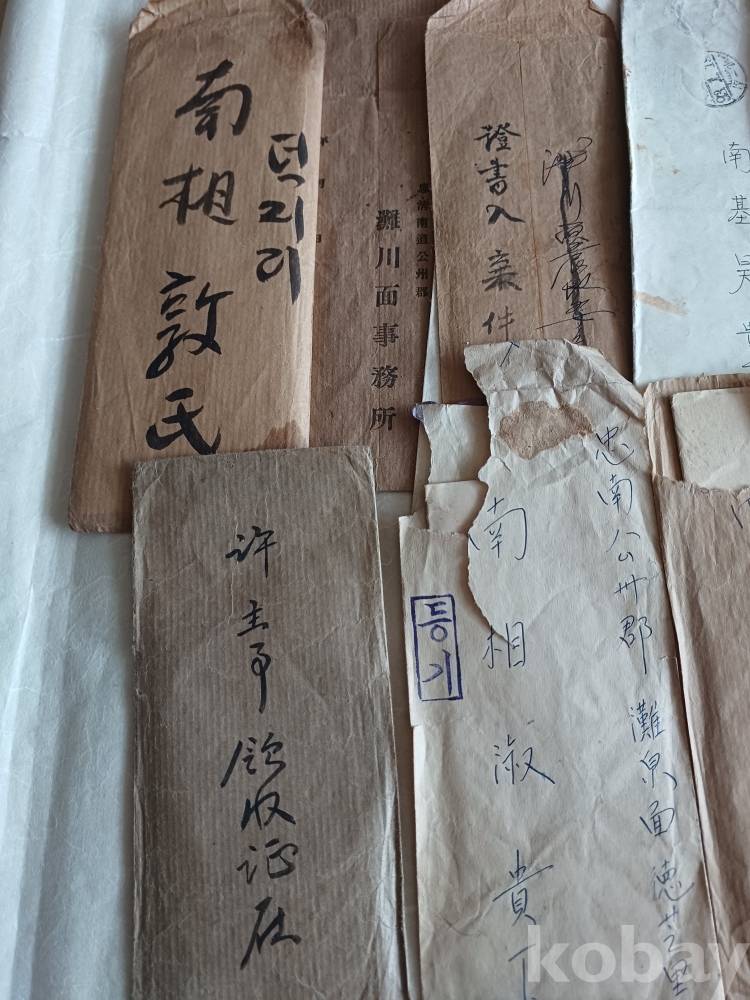 南相敦氏
덕지리
忠淸南道公州郡
灘川面事務所
證書入
案件
南基昊貴
許主事
領收証在
등기
忠南公州郡 灘泉面 德芝里
南相淑貴下
kobay